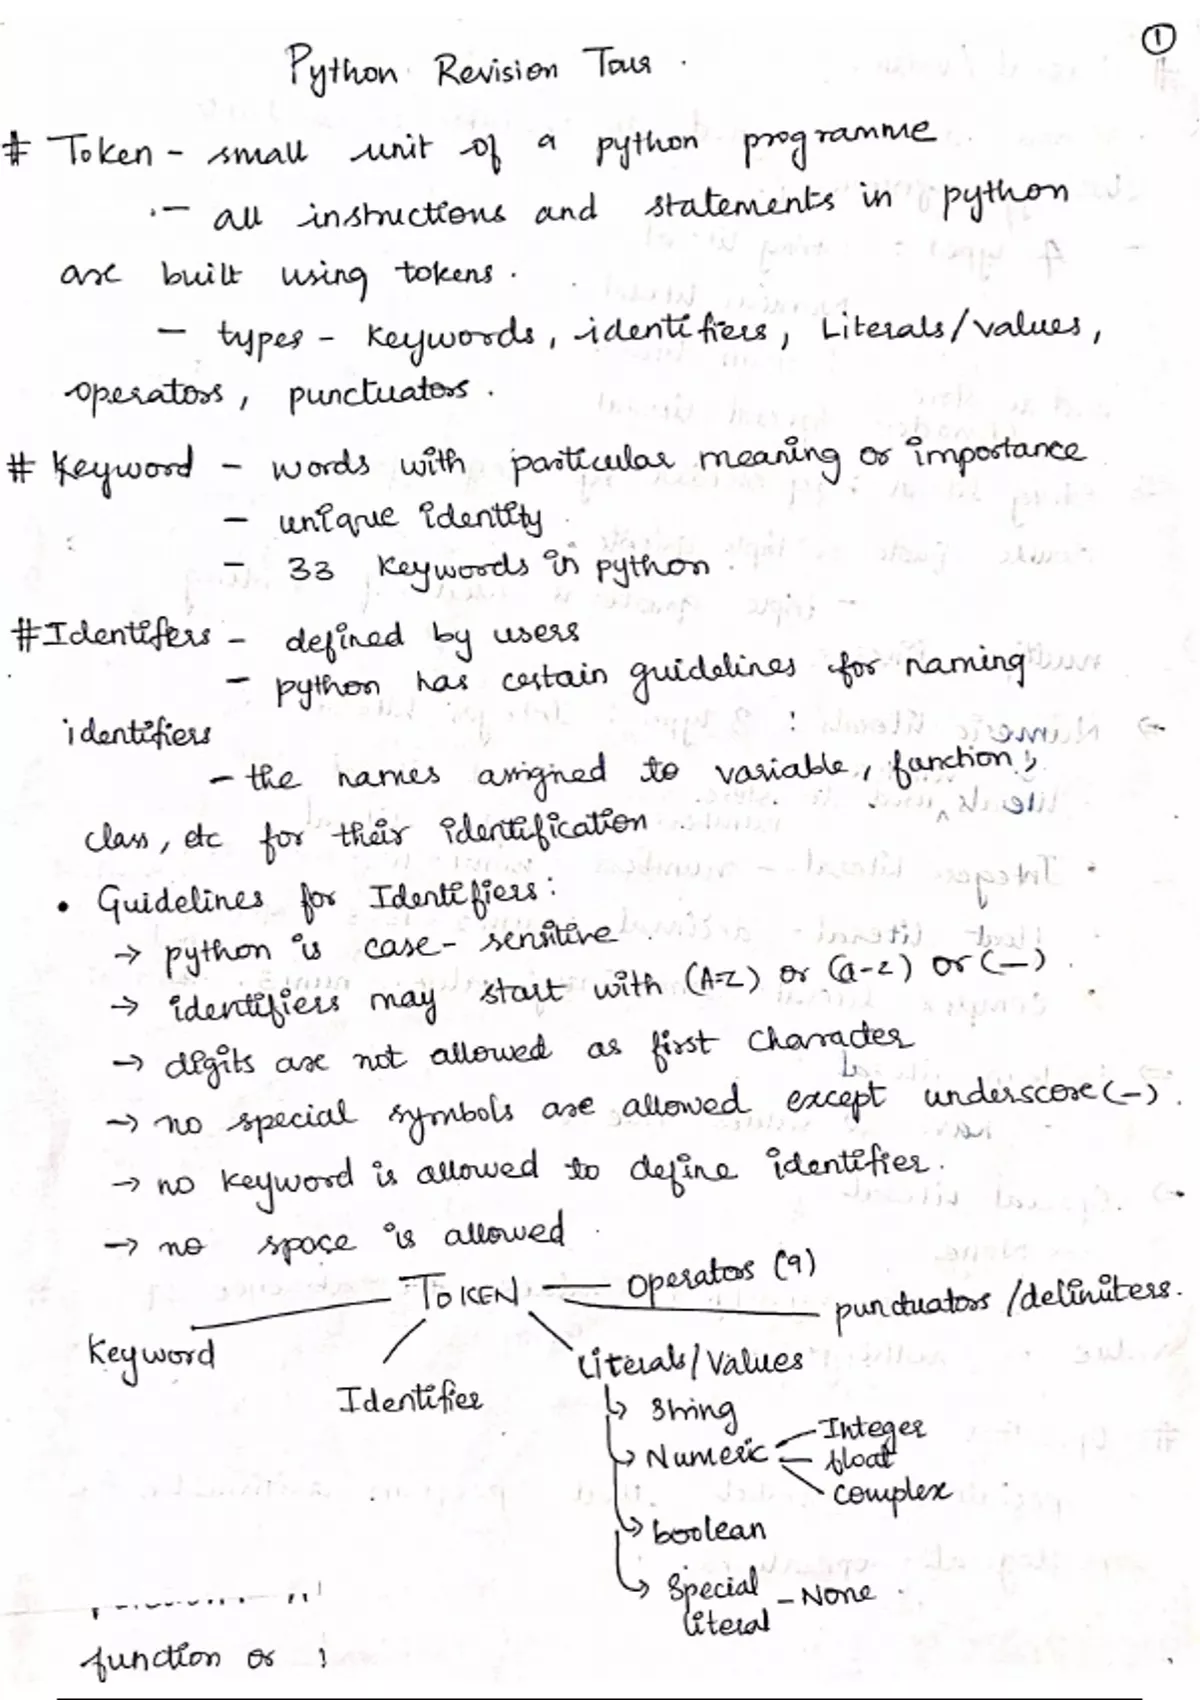 1
Python Revision Tour.
# Token - small unit of a python programme
- all instructions and statements in python
are built using tokens.
- types - keywords, identifiers, Literals/values,
operators, punctuators.
# Keyword - words with particular meaning or importance
- unique identity
- 33 keywords in python
# Identifers - defined by users
- python has certain guidelines for naming
identifiers
- the names assigned to variable, function,
class, etc for their identification
• Guidelines for Identifiers:
→ python is case-sensitive
→ identifiers may start with (A-Z) or (a-z) or (_).
→ digits are not allowed as first character
→ no special symbols are allowed except underscore (_).
→ no keyword is allowed to define identifier.
→ no space is allowed.
TOKEN — Operators (9)
punctuators /delimiters.
Keyword
Literals/Values
Identifier
↳ String
↳ Numeric - Integer
- float
- complex
↳ boolean
↳ Special - None
literal
function or